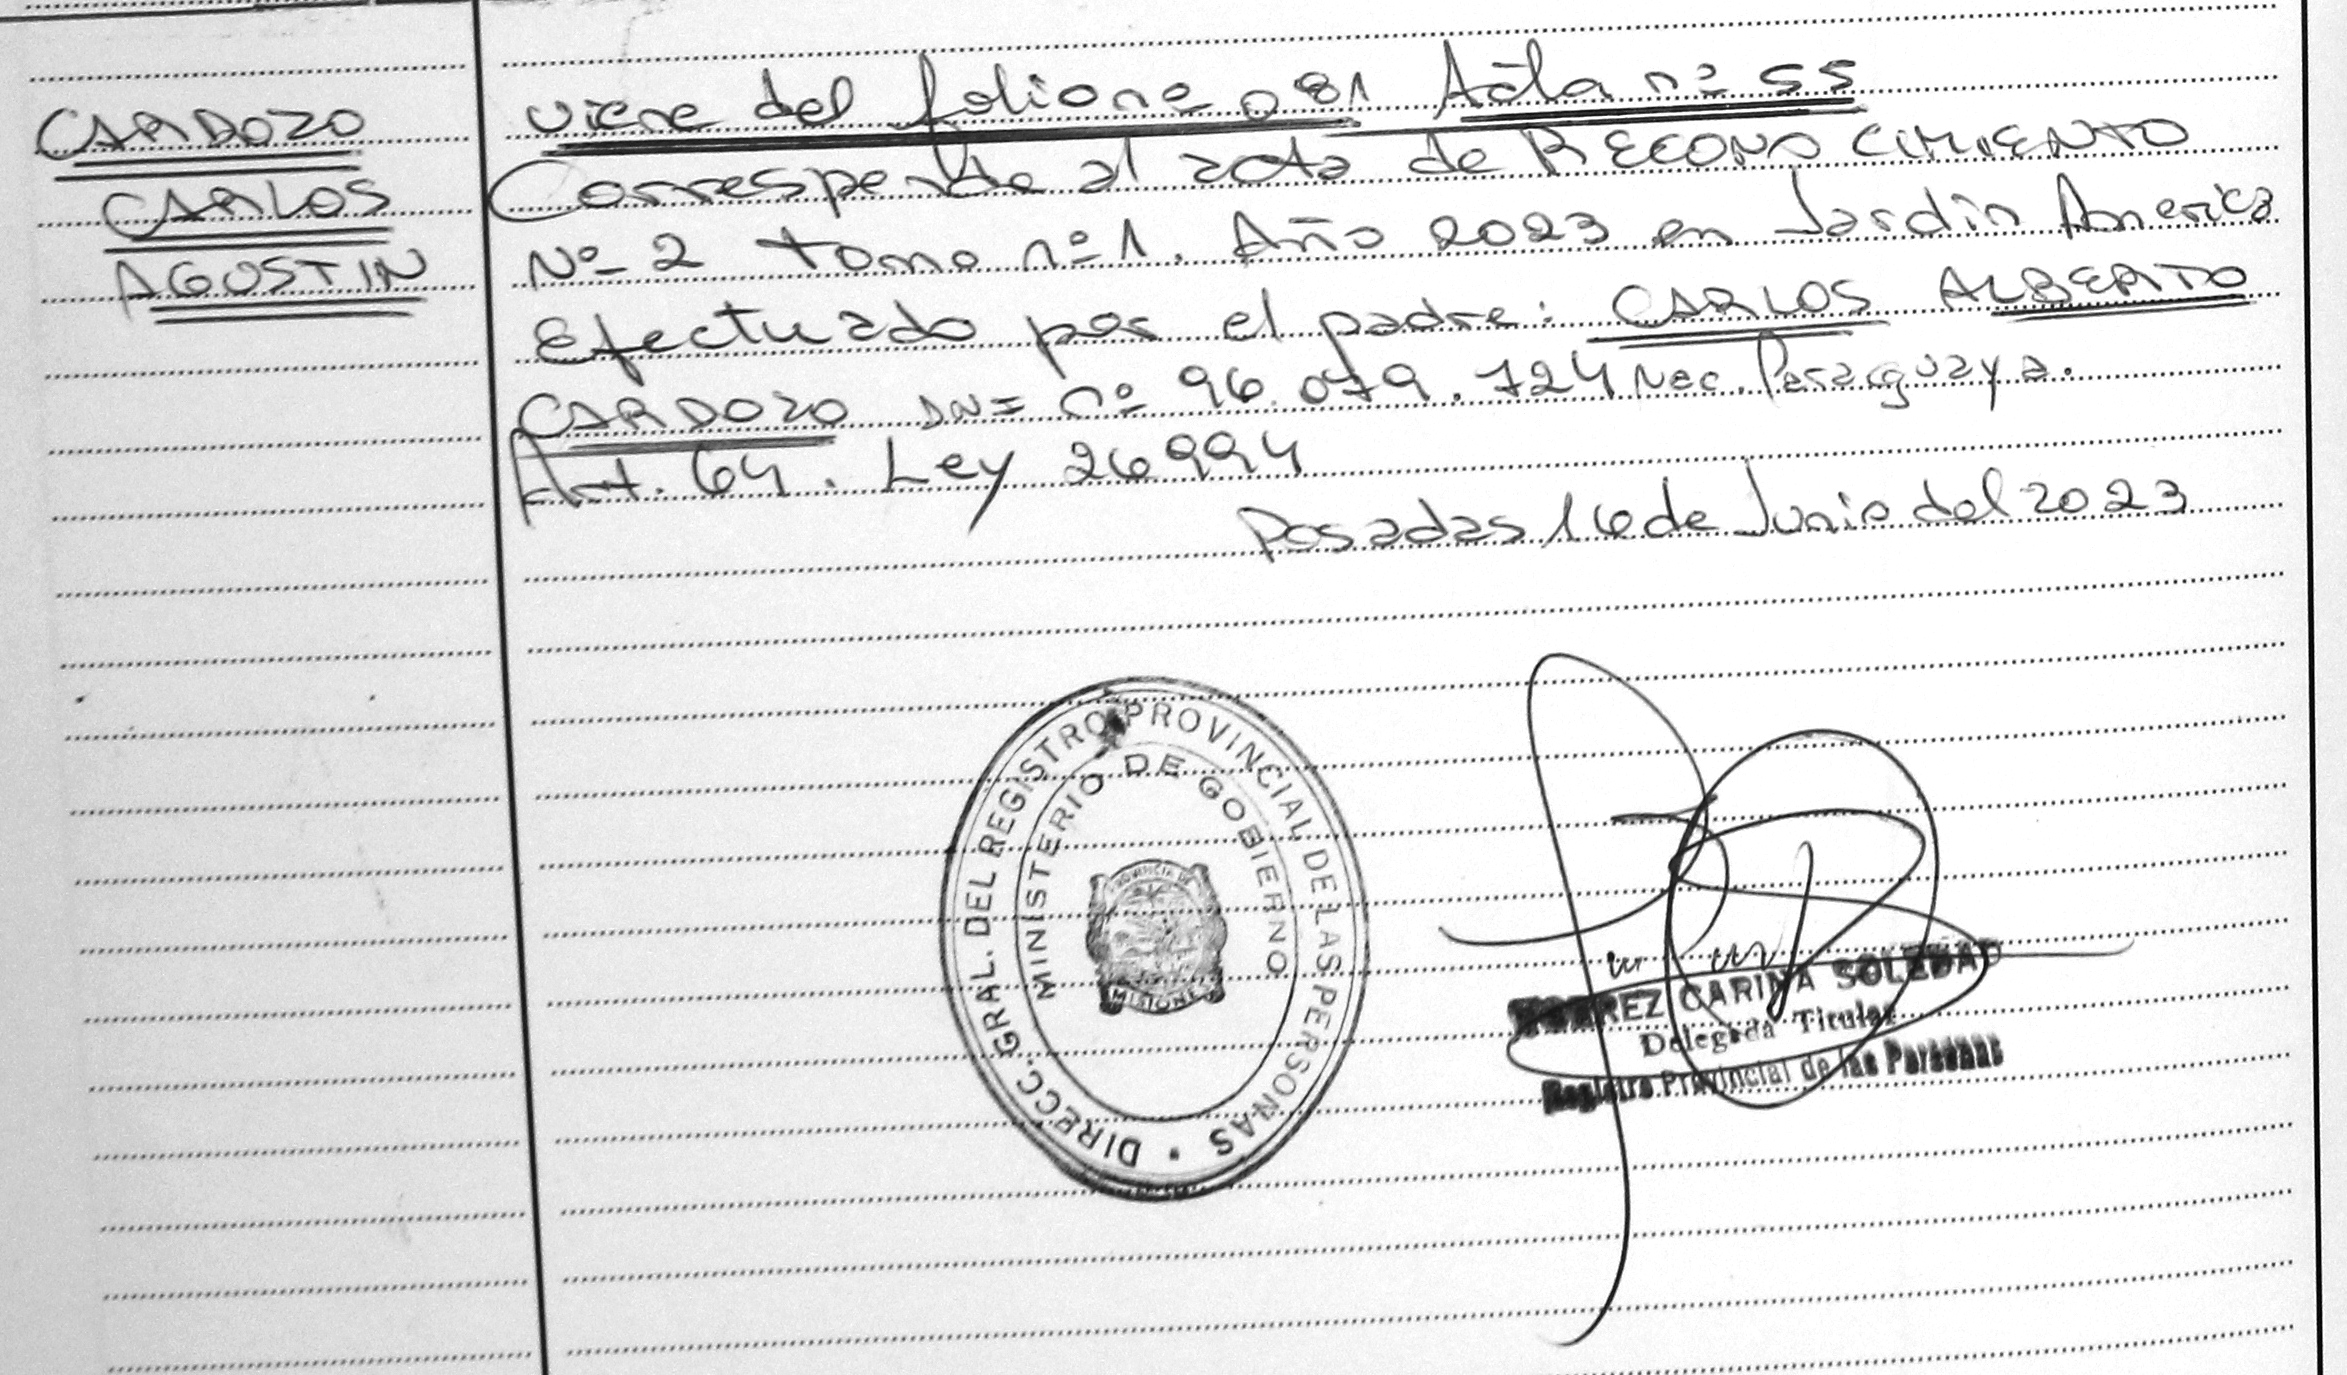 CARDOZO
CARLOS
AGOSTIN
viene del folio nº 081 Acta nº 55
Corresponde al acta de RECONOCIMIENTO
Nº 2 tomo nº 1. Año 2023 en Jardin America
Efectuado por el padre: CARLOS ALBERTO
CARDOZO DNI nº 96.079.724 Nac. Paraguaya.
Art. 64. Ley 26994
Posadas 16 de Junio del 2023
DIRECC. GRAL. DEL REGISTRO PROVINCIAL DE LAS PERSONAS
MINISTERIO DE GOBIERNO
PROVINCIA DE
MISIONES
CARINA SOLEDAD
Delegada Titular
Registro Provincial de las Personas